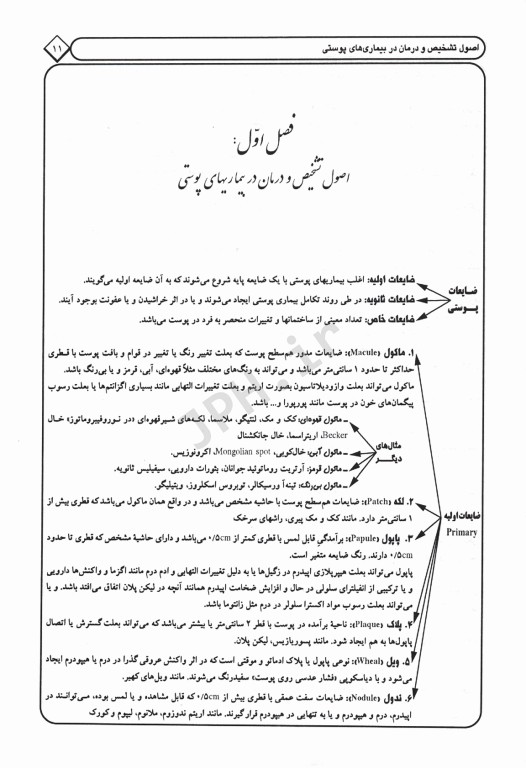 اصول تشخیص و درمان در بیماری‌های پوستی
۱۱
فصل اوّل:
اصول تشخیص و درمان در بیماریهای پوستی
ضایعات پوستی
ضایعات اولیه: اغلب بیماریهای پوستی با یک ضایعه پایه شروع می‌شوند که به آن ضایعه اولیه می‌گویند.
ضایعات ثانویه: در طی روند تکامل بیماری پوستی ایجاد می‌شوند و یا در اثر خراشیدن و یا عفونت بوجود آیند.
ضایعات خاص: تعداد معینی از ساختمانها و تغییرات منحصر به فرد در پوست می‌باشد.
ضایعات اولیه
Primary
۱. ماکول (Macule): ضایعات مدور هم‌سطح پوست که بعلت تغییر رنگ یا تغییر در قوام و بافت پوست با قطری
حداکثر تا حدود ۱ سانتی‌متر می‌باشد و می‌تواند به رنگ‌های مختلف مثلاً قهوه‌ای، آبی، قرمز و یا بی‌رنگ باشد.
ماکول می‌تواند بعلت وازودیلاتاسیون بصورت اریتم و بعلت تغییرات التهابی مانند بسیاری اگزانتم‌ها یا بعلت رسوب
پیگمان‌های خون در پوست مانند پورپورا و... باشد.
مثال‌های دیگر
ـ ماکول قهوه‌ای: کک و مک، لنتیگو، ملاسما، لکه‌های شیرقهوه‌ای «در نوروفیبروماتوز» خال
Becker، اریتراسما، خال جانکشنال
ـ ماکول آبی: خال‌کوبی، Mongolian spot، اکرونوزیس.
ـ ماکول قرمز: آرتریت روماتوئید جوانان، بثورات دارویی، سیفیلیس ثانویه.
ـ ماکول بی‌رنگ: تینه‌آ ورسیکالر، توبروس اسکلروز، ویتیلیگو.
۲. لکه (Patch): ضایعات هم‌سطح پوست با حاشیه مشخص می‌باشد و در واقع همان ماکول می‌باشد که قطری بیش از
۱ سانتی‌متر دارد. مانند کک و مک پیری، راشهای سرخک
۳. پاپول (Papule): برآمدگی قابل لمس با قطری کمتر از ۰/۵cm می‌باشد و دارای حاشیهٔ مشخص که قطری تا حدود
۰/۵cm دارند. رنگ ضایعه متغیر است.
پاپول می‌تواند بعلت هیپرپلازی اپیدرم در زگیل‌ها یا به دلیل تغییرات التهابی و ادم درم مانند اگزما و واکنش‌ها دارویی
و یا ترکیبی از انفیلترای سلولی در حال و افزایش ضخامت اپیدرم همانند آنچه در لیکن پلان اتفاق می‌افتد باشد. و یا
می‌تواند بعلت رسوب مواد اکسترا سلولر در درم مثل زانتوما باشد.
۴. پلاک (Plaque): ناحیهٔ برآمده در پوست با قطر ۲ سانتی‌متر یا بیشتر می‌باشد که می‌تواند بعلت گسترش یا اتصال
پاپول‌ها به هم ایجاد شود. مانند پسوریازیس، لیکن پلان.
۵. ویل (Wheal): نوعی پاپول یا پلاک ادماتو و موقتی است که در اثر واکنش عروقی گذرا در درم یا هیپودرم ایجاد
می‌شود و با دیاسکوپی «فشار عدسی روی پوست» سفیدرنگ می‌شوند. مانند ویل‌های کهیر.
۶. ندول (Nodule): ضایعات سفت عمقی با قطری بیش از ۰/۵cm که قابل مشاهده و یا لمس بوده، می‌توانند در
اپیدرم، درم و هیپودرم و یا به تنهایی در هیپودرم قرار گیرند. مانند اریتم ندوزوم، ملانوم، لیپوم و کورک
JPH.ir